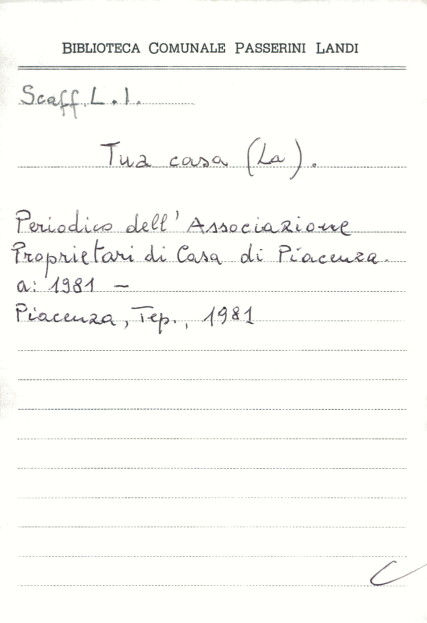 BIBLIOTECA COMUNALE PASSERINI LANDI
Scaff. L. 1.
Tua casa (La).
Periodico dell'Associazione
Proprietari di Casa di Piacenza.
a: 1981 –
Piacenza, Tep., 1981